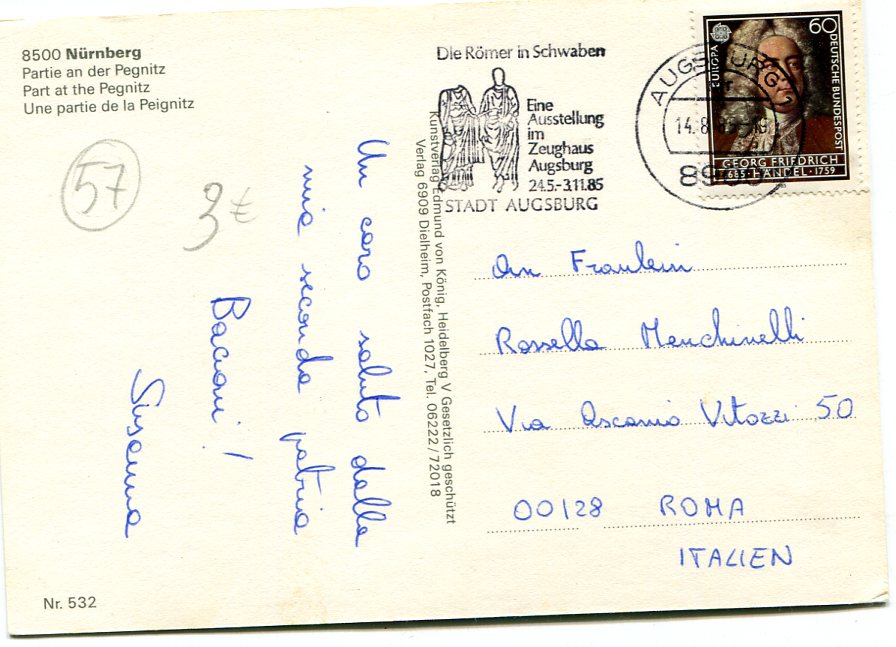 8500 Nürnberg
Partie an der Pegnitz
Part at the Pegnitz
Une partie de la Peignitz
57
3€
Un caro saluto dalla
mia seconda patria
Bacioni!
Susanna
Nr. 532
Kunstverlag Edmund von König, Heidelberg V Gesetzlich geschützt
Verlag 6909 Dielheim, Postfach 1027, Tel. 06222/72018
Die Römer in Schwaben
Eine
Ausstellung
im
Zeughaus
Augsburg
24.5.-3.11.85
STADT AUGSBURG
AUGSBURG 1
14.8.85-19
60
EUROPA
DEUTSCHE BUNDESPOST
GEORG FRIEDRICH
1685·HÄNDEL·1759
An Fraulein
Rossella Menchinelli
Via Ascanio Vitozzi 50
00128 ROMA
ITALIEN